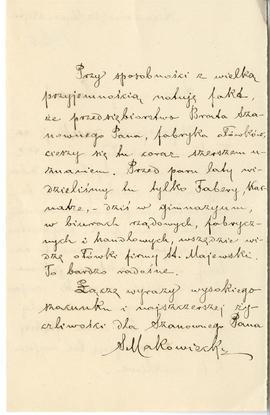 Przy sposobności z wielką
przyjemnością notuję fakt,
że przedsiębiorstwo Brata Sza-
nownego Pana, fabryka ołówków,
cieszy się tu coraz szerszem u-
znaniem. Przed paru laty wi-
dzieliśmy tu tylko Fabery, Har-
matze, - dziś w gimnazyum,
w biurach rządowych, fabrycz-
nych i handlowych, wszędzie wi-
dzę ołówki firmy St. Majewski.
To bardzo radośne.
Łączę wyrazy wysokiego
szacunku i najszczerszej ży-
czliwości dla Szanownego Pana
SMakowiecki